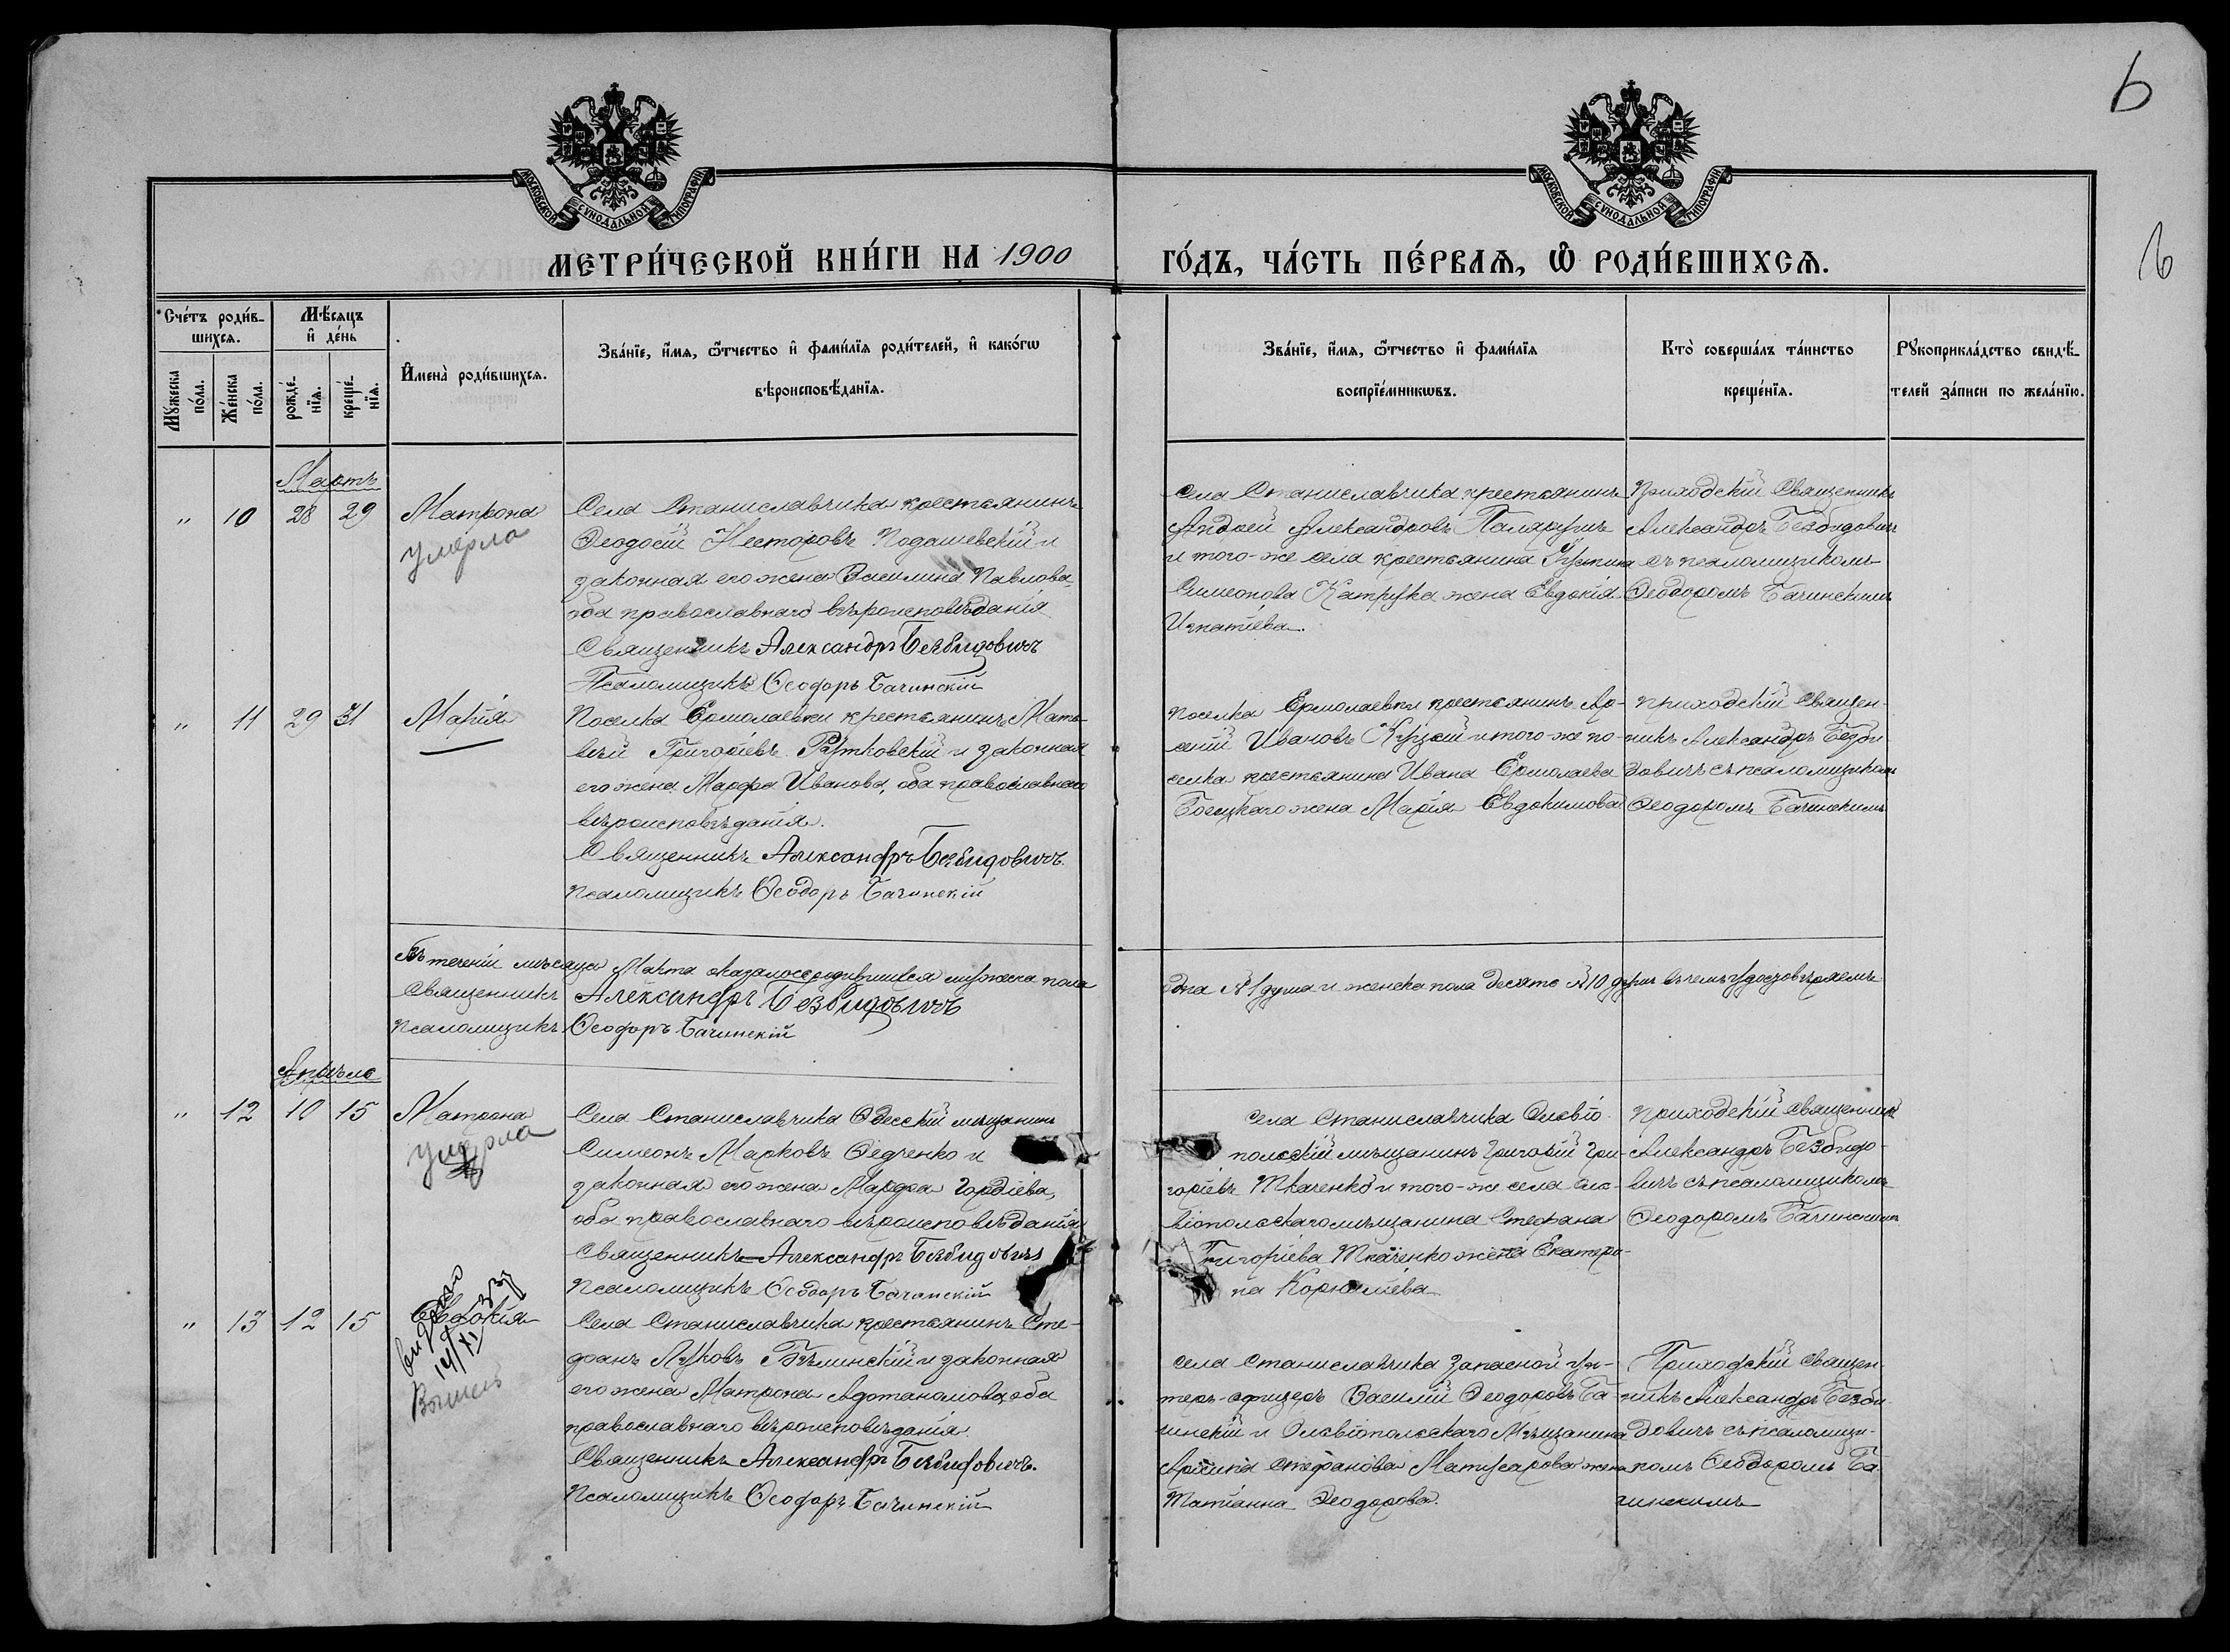 6
6
МОСКОВСКОЙ СѴНОДАЛЬНОЙ ТИПОГРАФІИ
МОСКОВСКОЙ СѴНОДАЛЬНОЙ ТИПОГРАФІИ
МЕТРИ́ЧЕСКОЙ КНИ́ГИ НА 1900
ГО́ДЪ, ЧА́СТЬ ПЕ́РВАѦ, Ѡ҆ РОДИ́ВШИХСѦ.
Сче́тъ роди́в-
шихсѧ.
Мѣ́сѧцъ
и҆ де́нь
Мꙋ́жеска
по́ла.
Же́нска
по́ла.
рожде́-
нїѧ.
креще́-
нїѧ.
И҆мена̀ роди́вшихсѧ.
Зва́нїе, и҆́мѧ, ѻ҆́тчество и҆ фами́лїѧ роди́телей, и҆ како́гѡ
вѣроисповѣ́данїѧ.
Зва́нїе, и҆́мѧ, ѻ҆́тчество и҆ фами́лїѧ
воспрїе́мникѡвъ.
Кто̀ соверша́лъ та́инство
креще́нїѧ.
Рꙋкоприкла́дство свидѣ́-
телей за́писи по жела́нїю.
Мартъ
" 10 28 29 Матрона
умерла
Села Станиславчика крестьянинъ
Ѳеодосій Несторовъ Подашевскій и
законная его жена Василина Павлова,
оба православнаго вѣроисповѣданія
Священникъ Александръ Безбидовичъ
Псаломщикъ Ѳеодоръ Бачинскій
Села Станиславчика крестьянинъ
Андрей Александровъ Паларунъ
и того-же села крестьянина Іустина
Симеонова Катрука жена Евдокія
Игнатіева.
Приходскій Священникъ
Александръ Безбидовичъ
съ псаломщикомъ
Ѳеодоромъ Бачинскимъ
" 11 29 31 Марія
Поселка Ермолаевки крестьянинъ Мат-
вѣй Григоріевъ Рутковскій и законная
его жена Марфа Иванова, оба православнаго
вѣроисповѣданія.
Священникъ Александръ Безбидовичъ
Псаломщикъ Ѳеодоръ Бачинскій
Поселка Ермолаевки крестьянинъ Ар-
сеній Ивановъ Куцый и того-же по-
селка крестьянина Ивана Ермолаева
жена Марія Евдокимова
Приходскій Священ-
никъ Александръ Безби-
довичъ съ псаломщикомъ
Ѳеодоромъ Бачинскимъ
Въ теченіи мѣсяца Марта оказалось родившихся мужеска пола
одна № 1 душа и женска пола десять № 10 душъ въ чемъ удостовѣряемъ
Священникъ Александръ Безбидовичъ
Псаломщикъ Ѳеодоръ Бачинскій
Апрѣль
" 12 10 15 Матрона
умерла
Села Станиславчика Одесскій мѣщанинъ
Симеонъ Марковъ Ѳедченко и
законная его жена Марфа Гордіева,
оба православнаго вѣроисповѣданія
Священникъ Александръ Безбидовичъ
Псаломщикъ Ѳеодоръ Бачинскій
Села Станиславчика Ольвіо-
польскій мѣщанинъ Григорій Гри-
горіевъ Ткаченко и того-же села Оль-
віопольскаго мѣщанина Стефана
Григоріева Ткаченко жена Екатери-
на Корниліева
Приходскій Священникъ
Александръ Безбидо-
вичъ съ псаломщикомъ
Ѳеодоромъ Бачинскимъ
" 13 12 15 Евдокія
Села Станиславчика крестьянинъ Сте-
фанъ Луковъ Бѣлинскій и законная
его жена Матрона, оба
православнаго вѣроисповѣданія.
Священникъ Александръ Безбидовичъ.
Псаломщикъ Ѳеодоръ Бачинскій
Села Станиславчика Запасной Ун-
теръ-офицеръ Василій Ѳеодоровъ Ба-
чинскій и Ольвіопольскаго Мѣщанина
Стефанова жена
Татіанна Ѳеодорова.
Приходскій Священ-
никъ Александръ Безби-
довичъ съ псаломщи-
комъ Ѳеодоромъ Ба-
чинскимъ